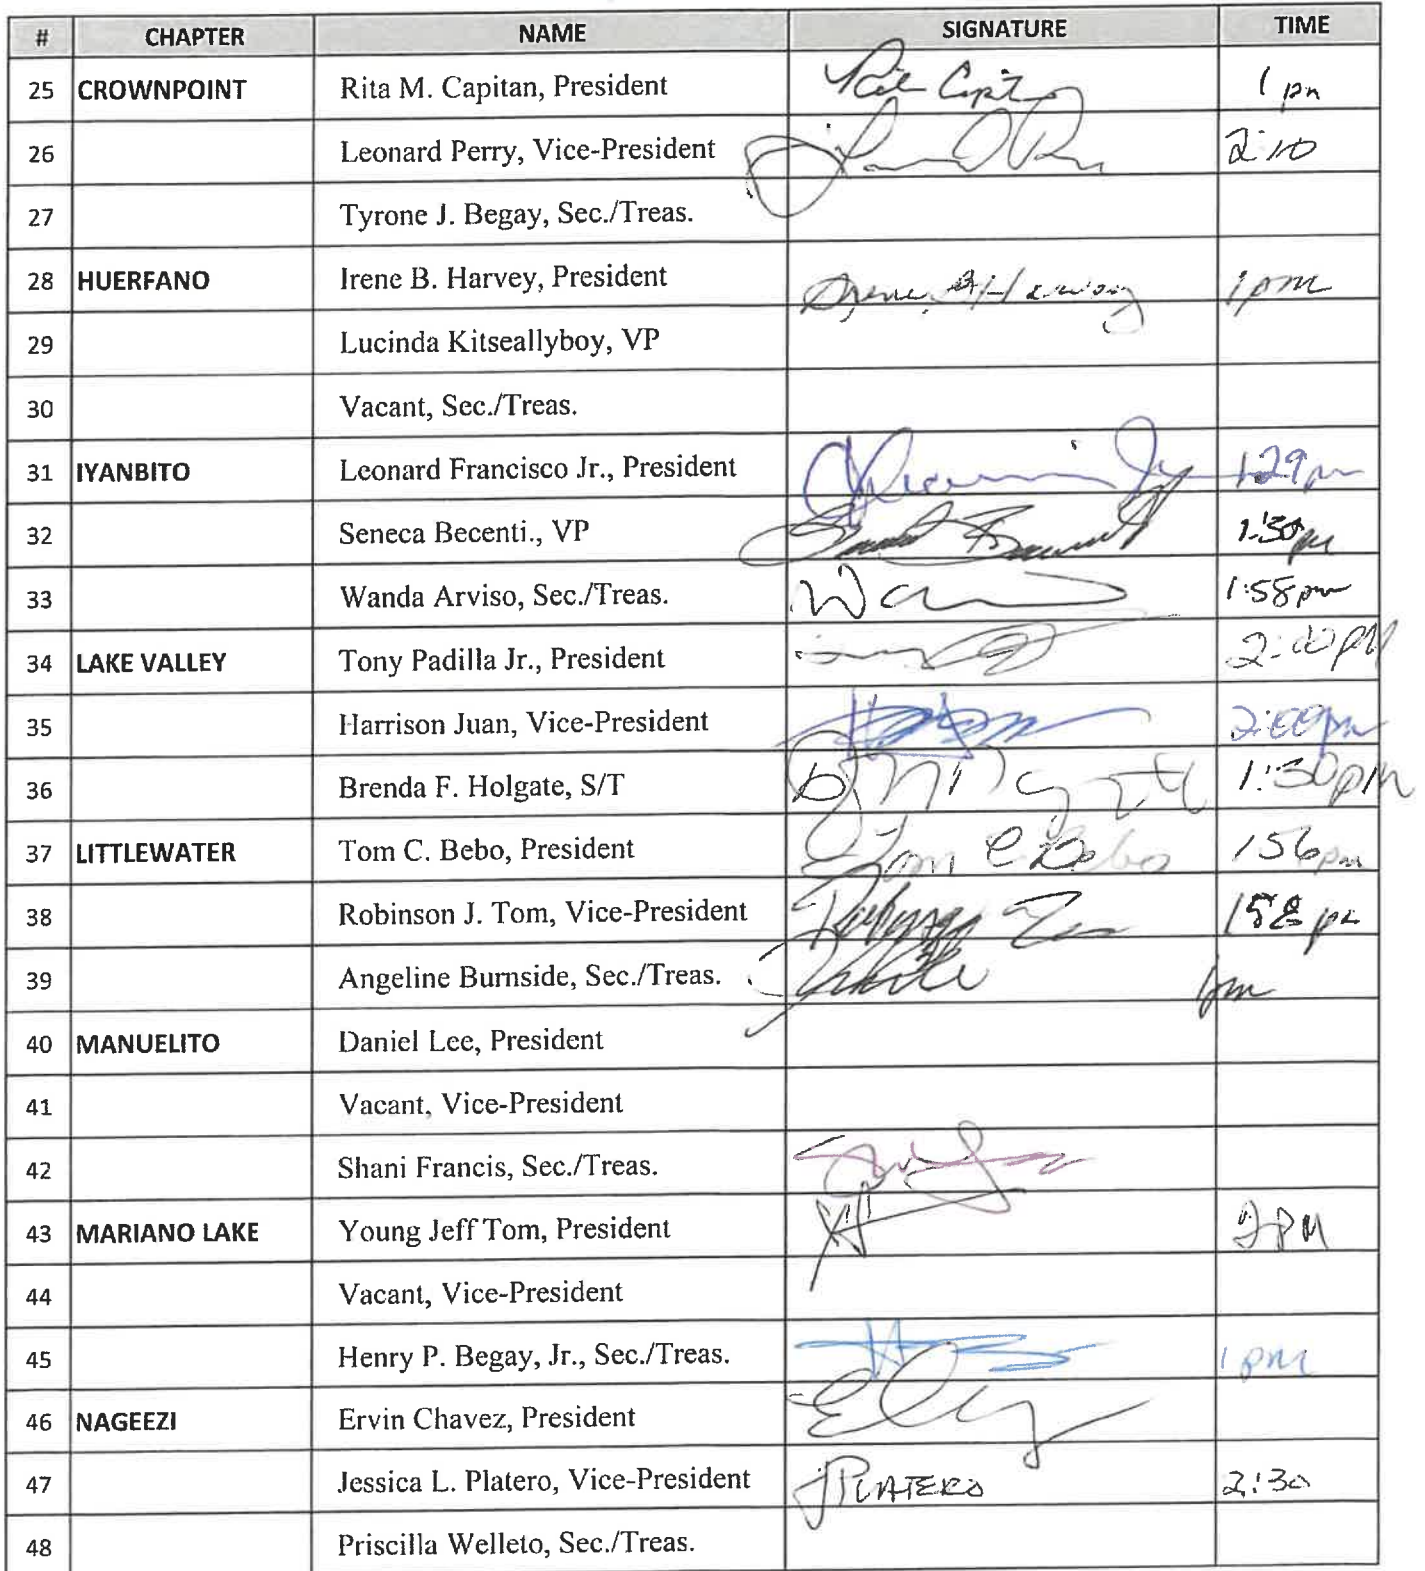 # CHAPTER NAME SIGNATURE TIME
25 CROWNPOINT Rita M. Capitan, President 1 pm
26 Leonard Perry, Vice-President 2:10
27 Tyrone J. Begay, Sec./Treas.
28 HUERFANO Irene B. Harvey, President Irene B Harvey 1pm
29 Lucinda Kitseallyboy, VP
30 Vacant, Sec./Treas.
31 IYANBITO Leonard Francisco Jr., President 1:29pm
32 Seneca Becenti., VP 1:30pm
33 Wanda Arviso, Sec./Treas. 1:58pm
34 LAKE VALLEY Tony Padilla Jr., President 2:00PM
35 Harrison Juan, Vice-President 2:00pm
36 Brenda F. Holgate, S/T 1:30pM
37 LITTLEWATER Tom C. Bebo, President Tom C Bebo 156pm
38 Robinson J. Tom, Vice-President 158 pm
39 Angeline Burnside, Sec./Treas. 1pm
40 MANUELITO Daniel Lee, President
41 Vacant, Vice-President
42 Shani Francis, Sec./Treas.
43 MARIANO LAKE Young Jeff Tom, President 2PM
44 Vacant, Vice-President
45 Henry P. Begay, Jr., Sec./Treas. 1pm
46 NAGEEZI Ervin Chavez, President
47 Jessica L. Platero, Vice-President JPLATERO 2:30
48 Priscilla Welleto, Sec./Treas.